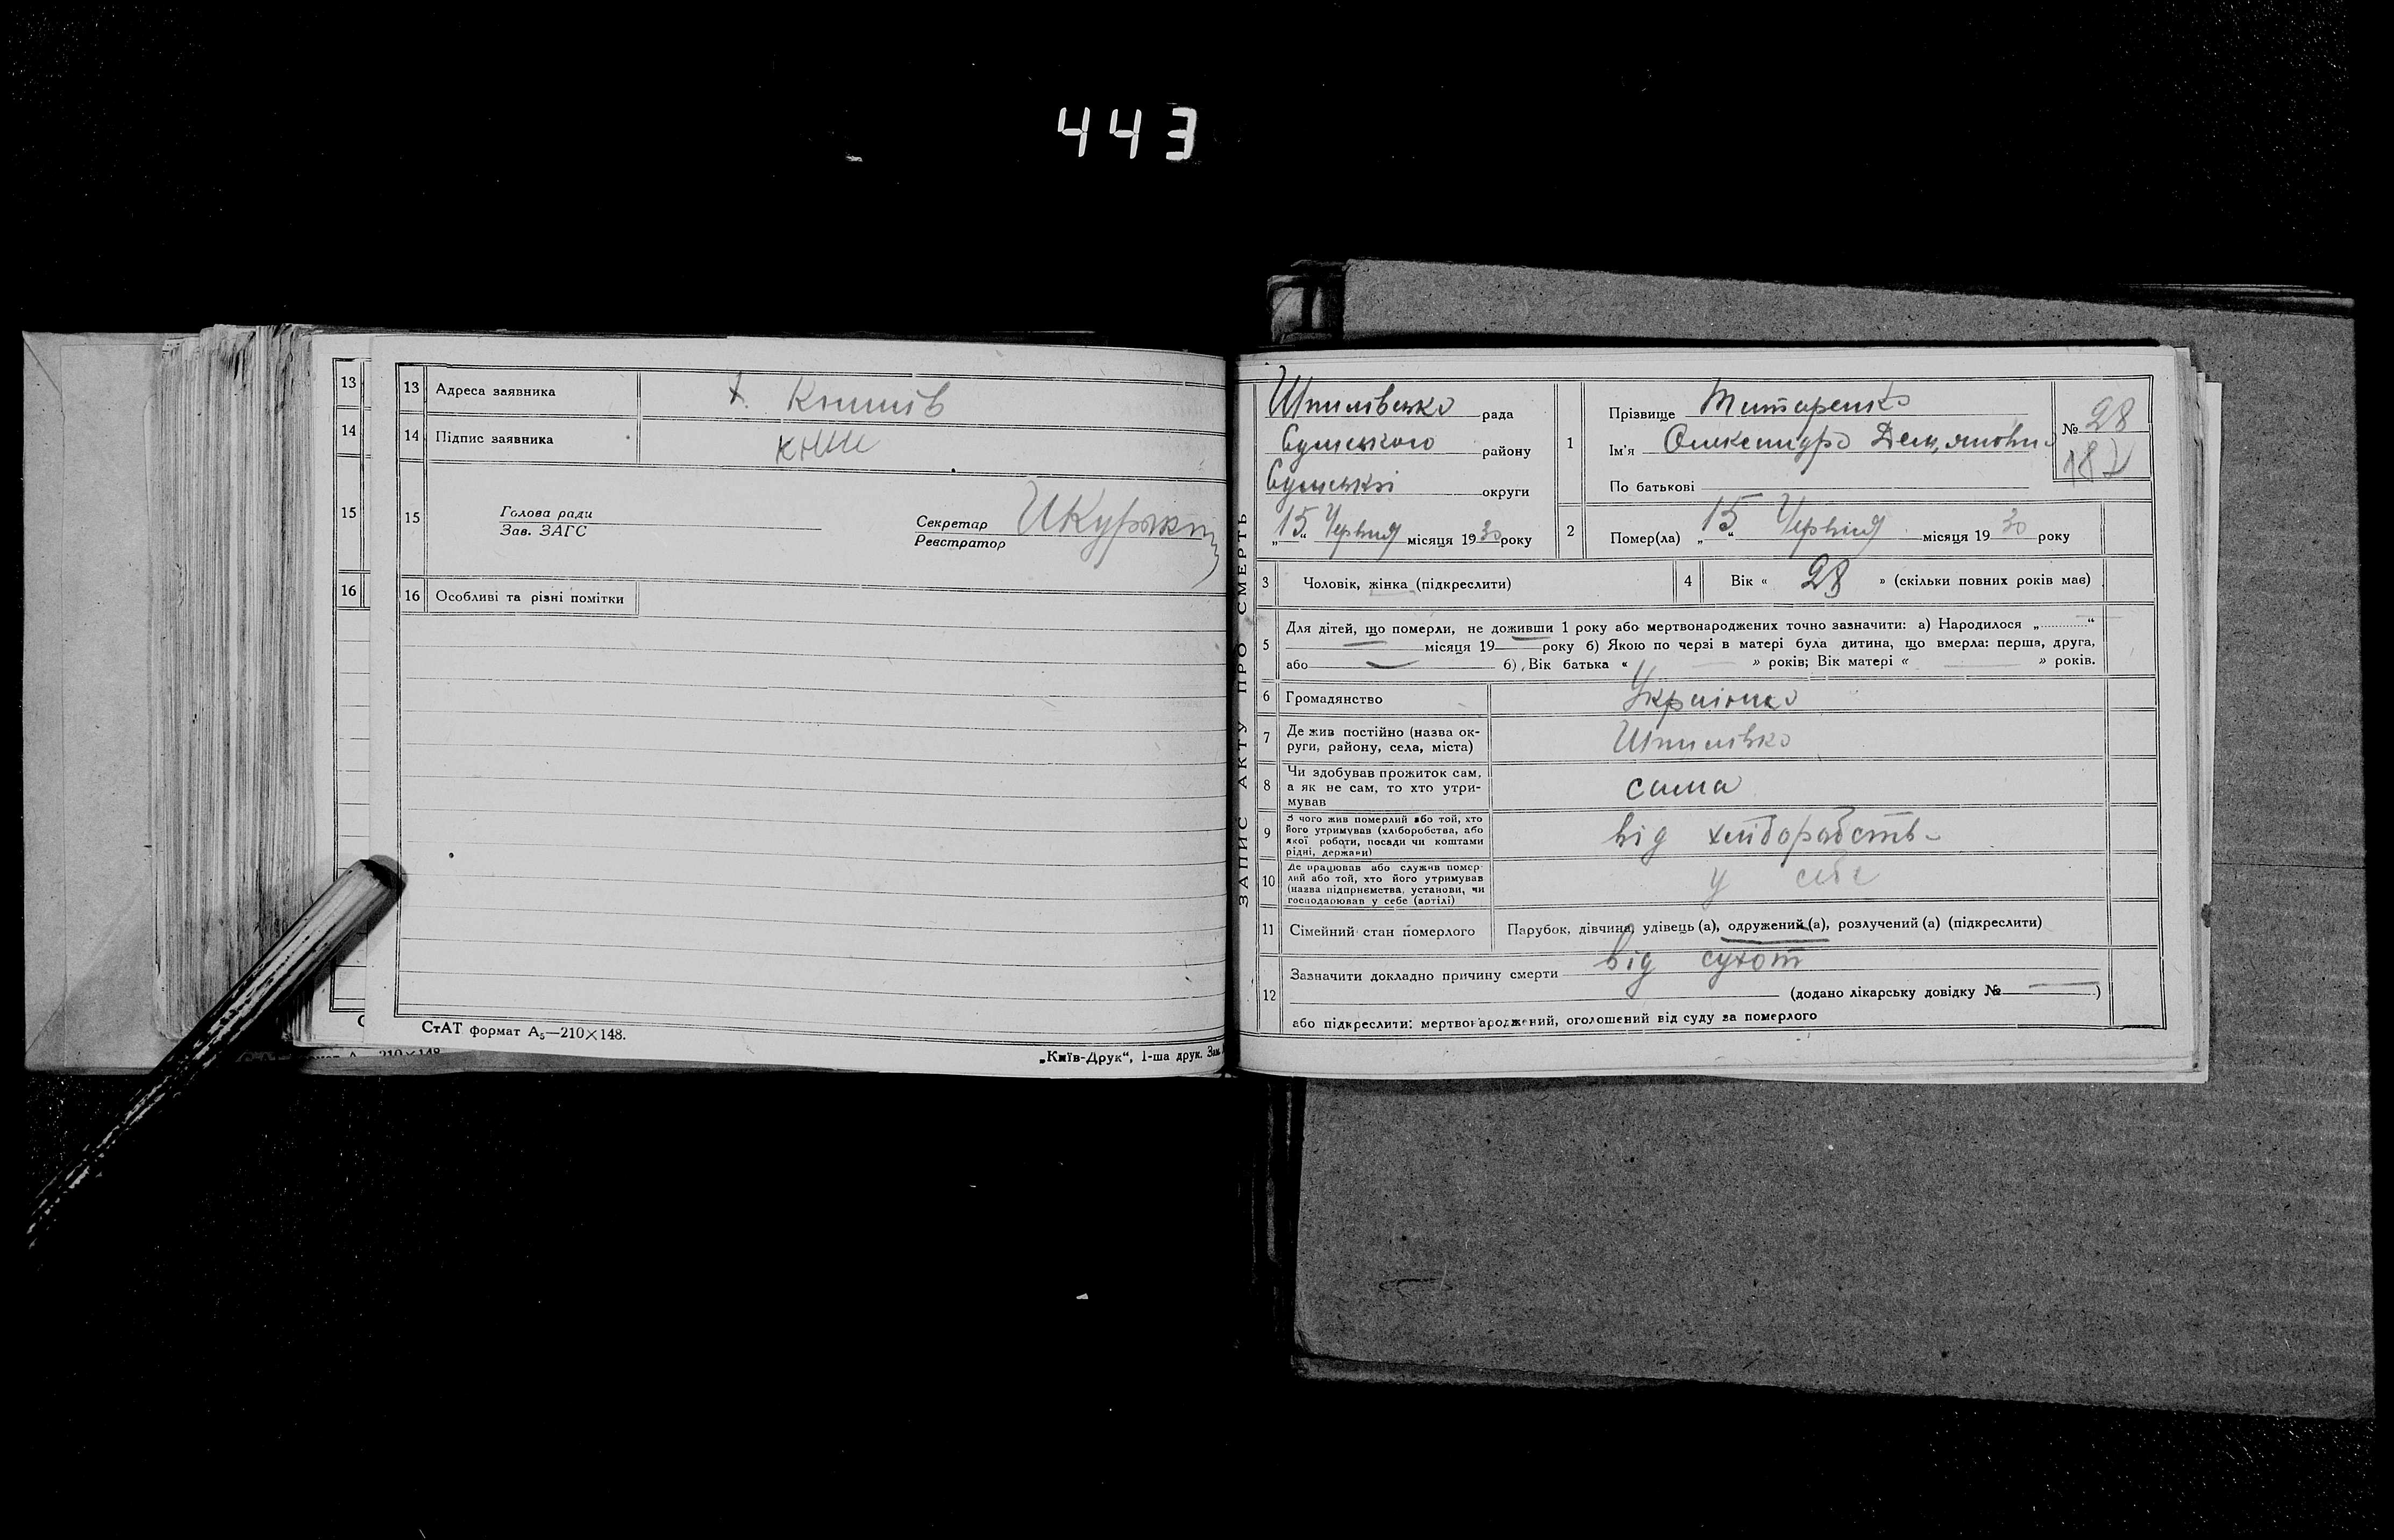 443
13
14
15
16
13 Адреса заявника х. Книшів
14 Підпис заявника Книш
15 Голова ради
Зав. ЗАГС
Секретар
Реєстратор
16 Особливі та різні помітки
СтАТ формат А₅—210×148.
„Київ-Друк“, 1-ша друк. Зам.
210×148
ЗАПИС АКТУ ПРО СМЕРТЬ
Шпилівсько рада
Сумського району
Сумської округи
„15“ Червня місяця 1930 року
1 Прізвище Титаренко
Ім'я Олександра Дем'янівн
По батькові
№ 28
187
2 Помер(ла) „15“ Червня місяця 1930 року
3 Чоловік, жінка (підкреслити)
4 Вік « 28 » (скільки повних років має)
5 Для дітей, що померли, не доживши 1 року або мертвонароджених точно зазначити: а) Народилося „ “
— місяця 19— року б) Якою по черзі в матері була дитина, що вмерла: перша, друга,
або — б) Вік батька « — » років; Вік матері « — » років.
6 Громадянство Українка
7 Де жив постійно (назва ок-
руги, району, села, міста) Шпилівка
8 Чи здобував прожиток сам,
а як не сам, то хто утри-
мував сама
9 З чого жив померлий або той, хто
його утримував (хліборобства, або
якої роботи, посади чи коштами
рідні, держави) від хліборобств
10 Де працював або служив помер-
лий або той, хто його утримував
(назва підприємства, установи, чи
господарював у себе (артілі) у себе
11 Сімейний стан померлого Парубок, дівчина, удівець (а), одружений (а), розлучений (а) (підкреслити)
12 Зазначити докладно причину смерти від сухот
(додано лікарську довідку № — )
або підкреслити: мертвонароджений, оголошений від суду за померлого